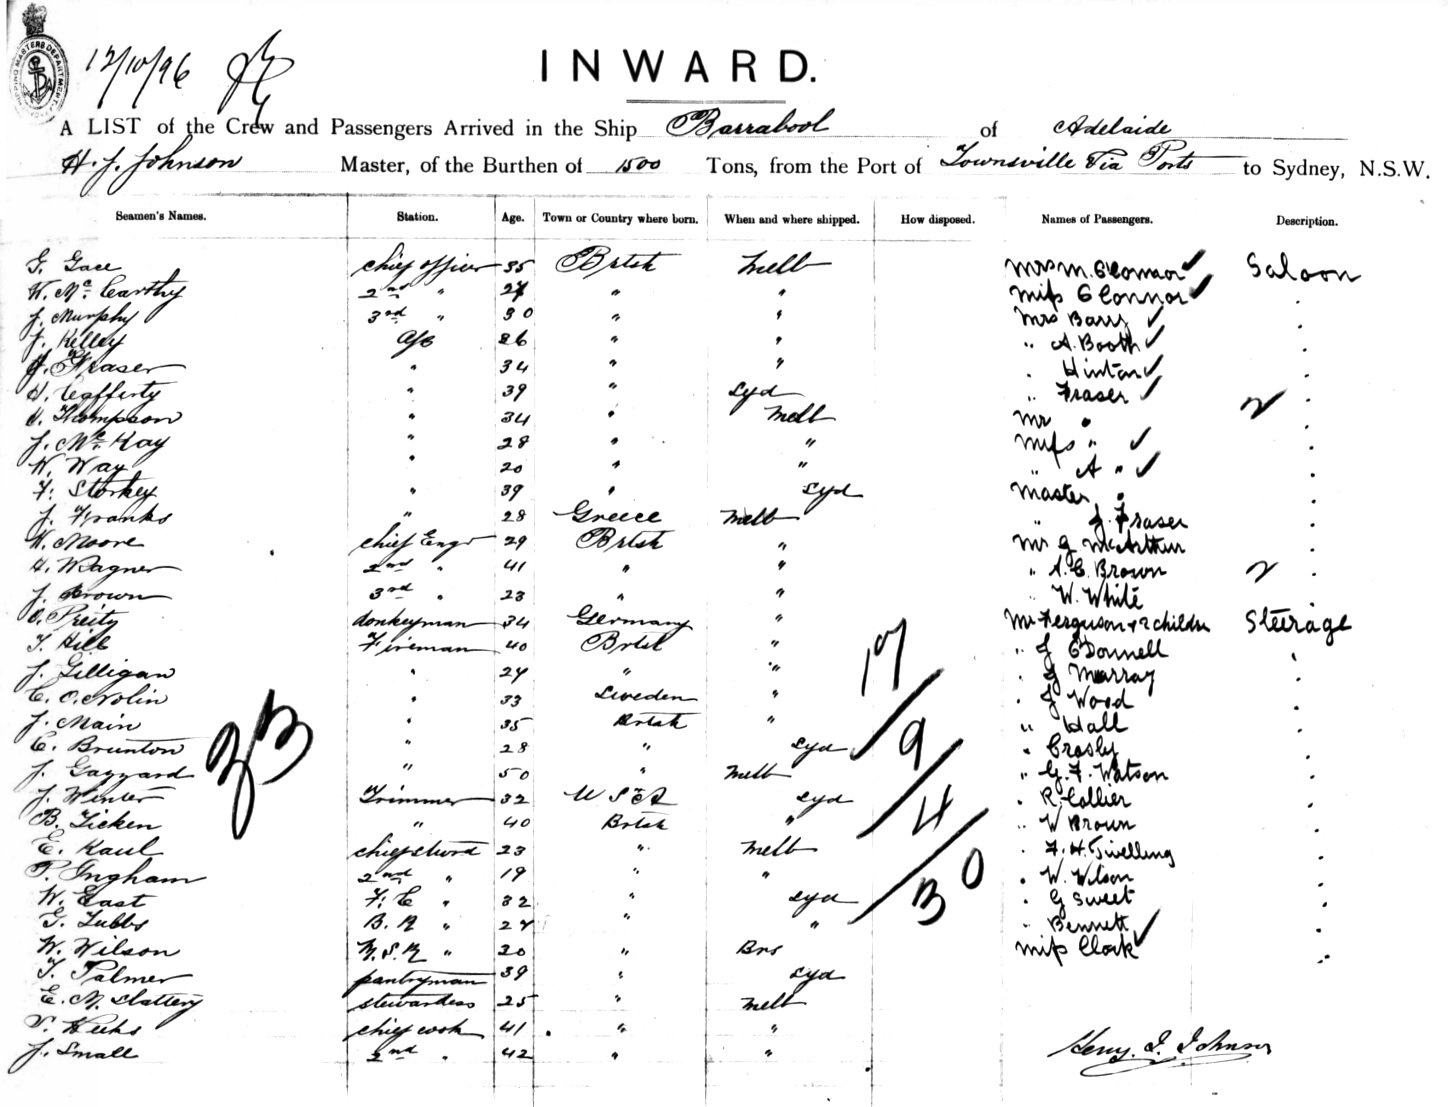 SHIPPING MASTERS DEPARTMENT
12/10/96
INWARD.
A LIST of the Crew and Passengers Arrived in the Ship Barrabool of Adelaide
H. J. Johnson Master, of the Burthen of 1500 Tons, from the Port of Townsville Via Ports to Sydney, N.S.W.
Seamen's Names. Station. Age. Town or Country where born. When and where shipped. How disposed. Names of Passengers. Description.
G. Gace chief officer 35 Brtsh Melb Mrs M. O'Connor Saloon
W. McCarthy 2nd " 27 " " Miss O'Connor "
J. Murphy 3rd " 30 " " Mrs Barry "
J. Killey A/B 26 " " " A. Booth "
J. Fraser " 34 " " " Hinton "
H. Cafferty " 39 " Syd " Fraser "
Thompson " 34 " Melb Mr " 2 "
J. McKay " 28 " " Miss " "
W. Way " 20 " " " A " "
F. Storkey " 39 " Syd Master " "
J. Franks " 28 Greece Melb " J. Fraser "
W. Moore chief Engr 29 Brtsh " Mr G. McArthur "
H. Wagner 2nd " 41 " " " A. C. Brown 2 "
J. Brown 3rd " 23 " " " W. White "
Preity donkeyman 34 Germany " Mr Ferguson + 2 children Steerage
T. Hill Fireman 40 Brtsh " " J O'Donnell "
J. Gilligan " 24 " " " J Murray "
C. O. Nolin " 33 Sweden " " J Wood "
J. Main " 35 Brtsh " " Hall "
C. Brunton " 28 " Syd " Crosby "
J. Gazzard " 50 " Melb " G. F. Watson "
J. Winter Trimmer 32 USA Syd " R. Collier "
B. Ticken " 40 Brtsh " " W Brown "
E. Kaul chief stwrd 23 " Melb " F. H. Twelling "
P. Ingham 2nd " 19 " " " W. Wilson "
W. East F. C " 32 " Syd " G Sweet "
G. Tubbs B. R " 24 " " " Bennett "
W. Wilson M. S. R " 20 " Brs Miss Clark "
T. Palmer pantryman 39 " Syd
E. M. Slattery stewardess 25 " Melb
Weeks chief cook 41 " "
J. Small 2nd " 42 " "
33
17
9
4
30
Henry J. Johnson